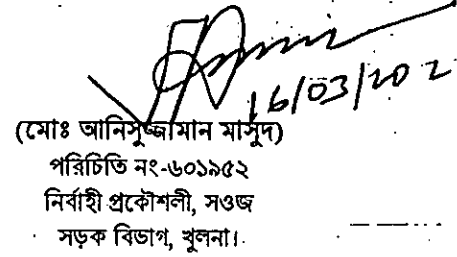 16/03/202
(মোঃ আনিসুজ্জামান মাসুদ)
পরিচিতি নং-৬০১৯৫২
নির্বাহী প্রকৌশলী, সওজ
সড়ক বিভাগ, খুলনা।